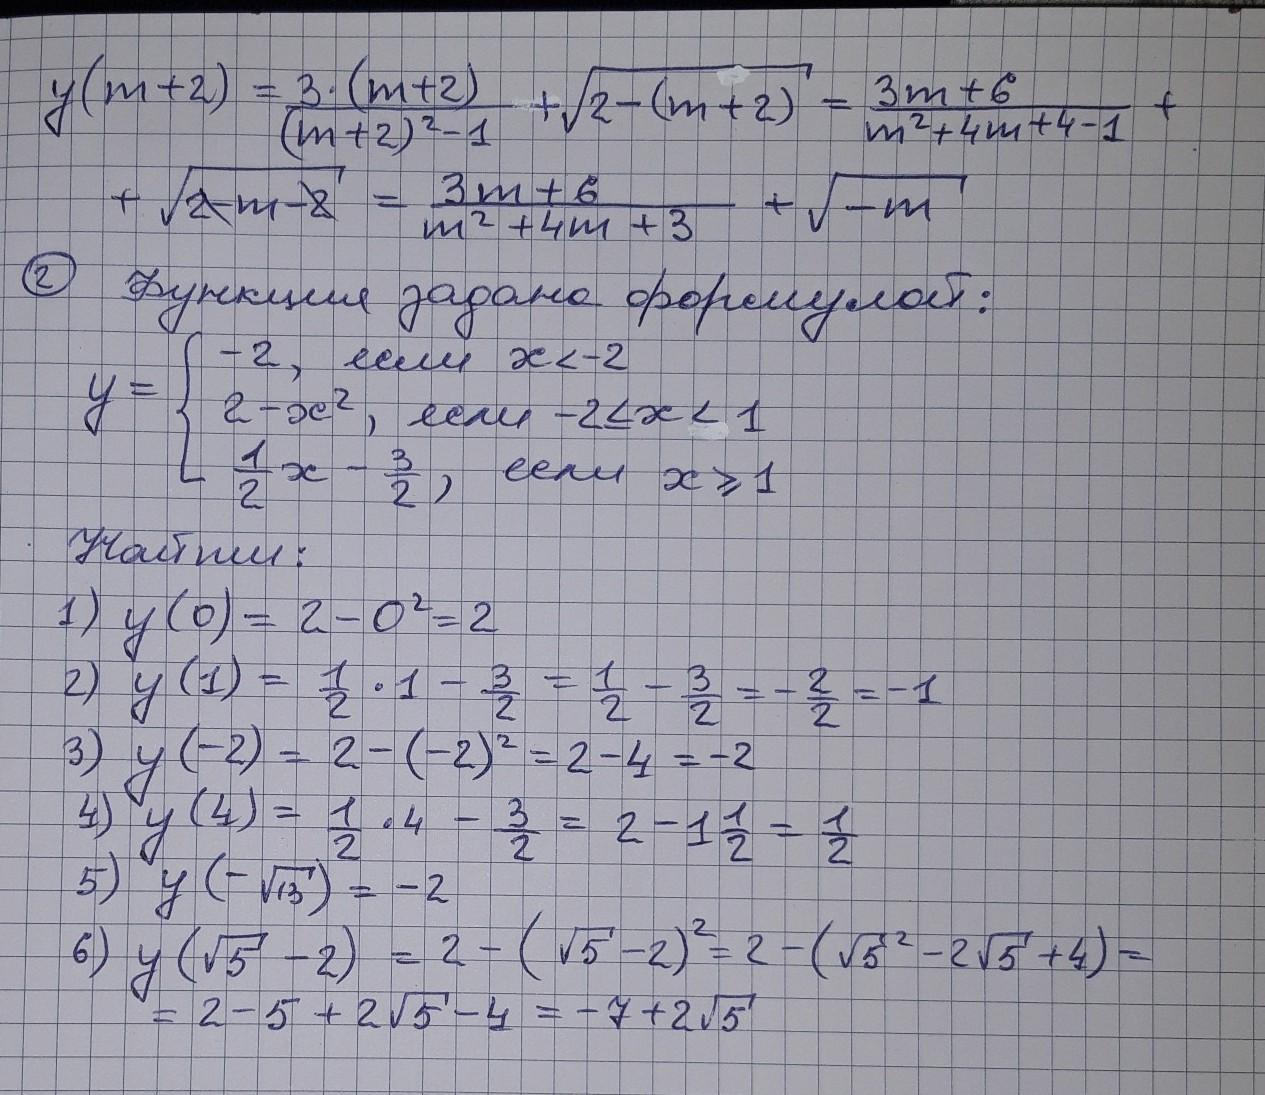 y(m+2) = 3·(m+2)/((m+2)²-1) + √(2-(m+2)) = (3m+6)/(m²+4m+4-1) +
+ √(2-m-2) = (3m+6)/(m²+4m+3) + √(-m)
② Функция задана формулой:
y = { -2, если x<-2
2-x², если -2≤x<1
1/2 x - 3/2, если x≥1
Найти:
1) y(0) = 2-0² = 2
2) y(1) = 1/2·1 - 3/2 = 1/2 - 3/2 = -2/2 = -1
3) y(-2) = 2-(-2)² = 2-4 = -2
4) y(4) = 1/2·4 - 3/2 = 2-1 1/2 = 1/2
5) y(-√13) = -2
6) y(√5-2) = 2-(√5-2)² = 2-(√5²-2√5+4) =
= 2-5+2√5-4 = -7+2√5